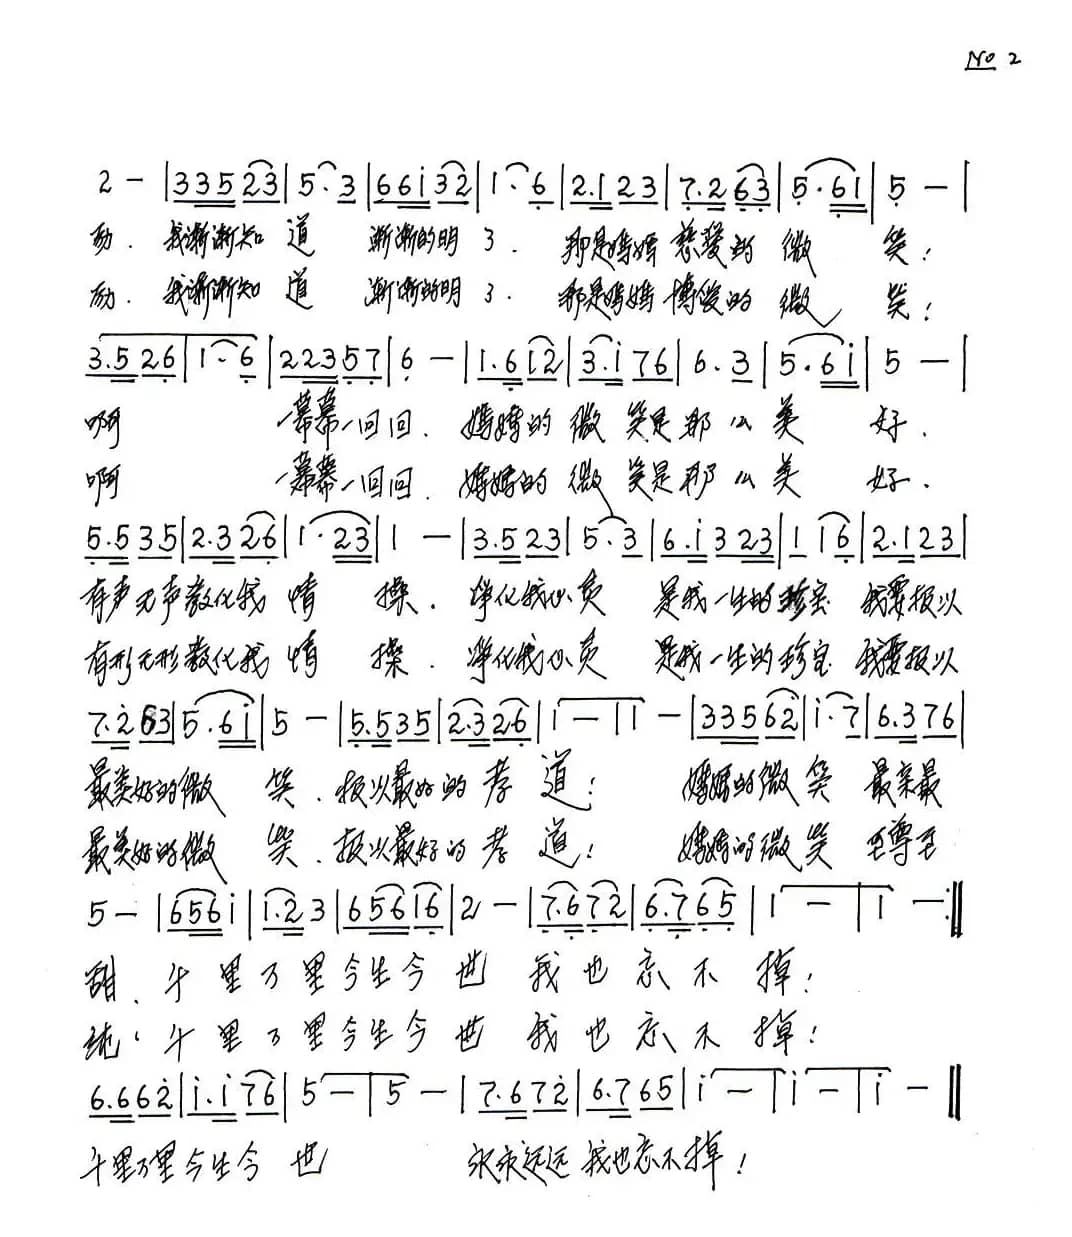 No 2
2 — | 3 3 5 2 3 | 5 · 3 | 6 6 i 3 2 | 1 · 6 | 2 . 1 2 3 | 7 . 2 6 3 | 5 · 6 1 | 5 — |
动. 我渐渐知道 渐渐的明了. 那是妈妈慈爱的微笑;
励. 我渐渐知道 渐渐的明了. 那是妈妈博爱的微笑;
3 . 5 2 6 | 1 · 6 | 2 2 3 5 7 | 6 — | 1 . 6 i 2 | 3 . i 7 6 | 6 . 3 | 5 . 6 i | 5 — |
啊 一幕幕一回回. 妈妈的微笑是那么美好.
啊 一幕幕一回回. 妈妈的微笑是那么美好.
5 . 5 3 5 | 2 . 3 2 6 | 1 · 2 3 | 1 — | 3 . 5 2 3 | 5 . 3 | 6 . i 3 2 3 | 1 1 6 | 2 . 1 2 3 |
有声无声教化我情操. 净化我心灵 是我一生的珍宝 我要报以
有形无形教化我情操. 净化我心灵 是我一生的珍宝 我要报以
7 . 2 6 3 | 5 . 6 i | 5 — | 5 . 5 3 5 | 2 . 3 2 6 | i — | i — | 3 3 5 6 2 | i . 7 | 6 . 3 7 6 |
最美好的微笑. 报以最好的孝道; 妈妈的微笑最亲最
最美好的微笑. 报以最好的孝道; 妈妈的微笑至尊至
5 — | 6 5 6 i | i . 2 3 | 6 5 6 1 6 | 2 — | 7 . 6 7 2 | 6 . 7 6 5 | 1 — | 1 — :||
甜. 千里万里今生今世 我也忘不掉;
纯; 千里万里今生今世 我也忘不掉;
6 . 6 6 2 | i . i 7 6 | 5 — | 5 — | 7 . 6 7 2 | 6 . 7 6 5 | i — | i — | i — ||
千里万里今生今世 永永远远我也忘不掉!